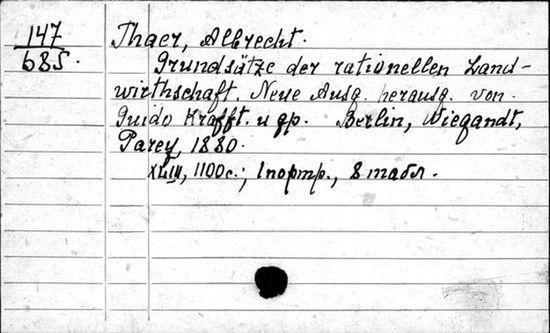 147
685.
Thaer, Albrecht.
Grundsätze der rationellen Land-
wirthschaft. Neue Ausg. herausg. von
Guido Krafft. и др. Berlin, Wiegandt,
Parey, 1880.
XLIII, 1100с.; 1портр., 8 табл.